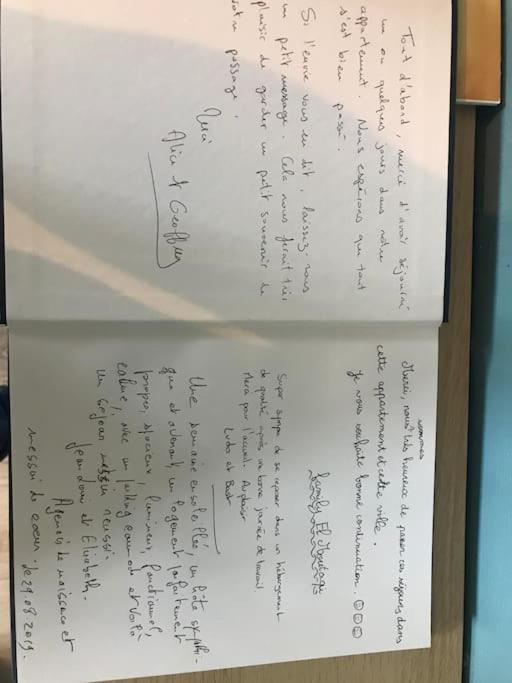 Tout d'abord, merci d'avoir séjourné
un ou quelques jours dans notre
appartement. Nous espérons que tout
s'est bien passé.
Si l'envie vous en dit, laissez-nous
un petit message. Cela nous ferait très
plaisir de garder un petit souvenir de
votre passage.
Merci
Alice & Geoffrey
sommes
Merci, nous très heureux de passer ces séjours dans
cette appartement et cette ville.
Je vous souhaite bonne continuation.
Family El
Super sympa de se reposer dans un hébergement
de qualité après une bonne journée de travail
Merci pour l'accueil. Au plaisir
Ludo et
Une semaine ensoleillée, un hôte sympathi-
que et avenant, un logement parfaitement
propre, spacieux, lumineux, fonctionnel,
calme, avec un parking commode et voilà
un séjour réussi.
Jean Louis et Elisabeth.
Agenais de naissance et
de coeur. le 29.08.2019.